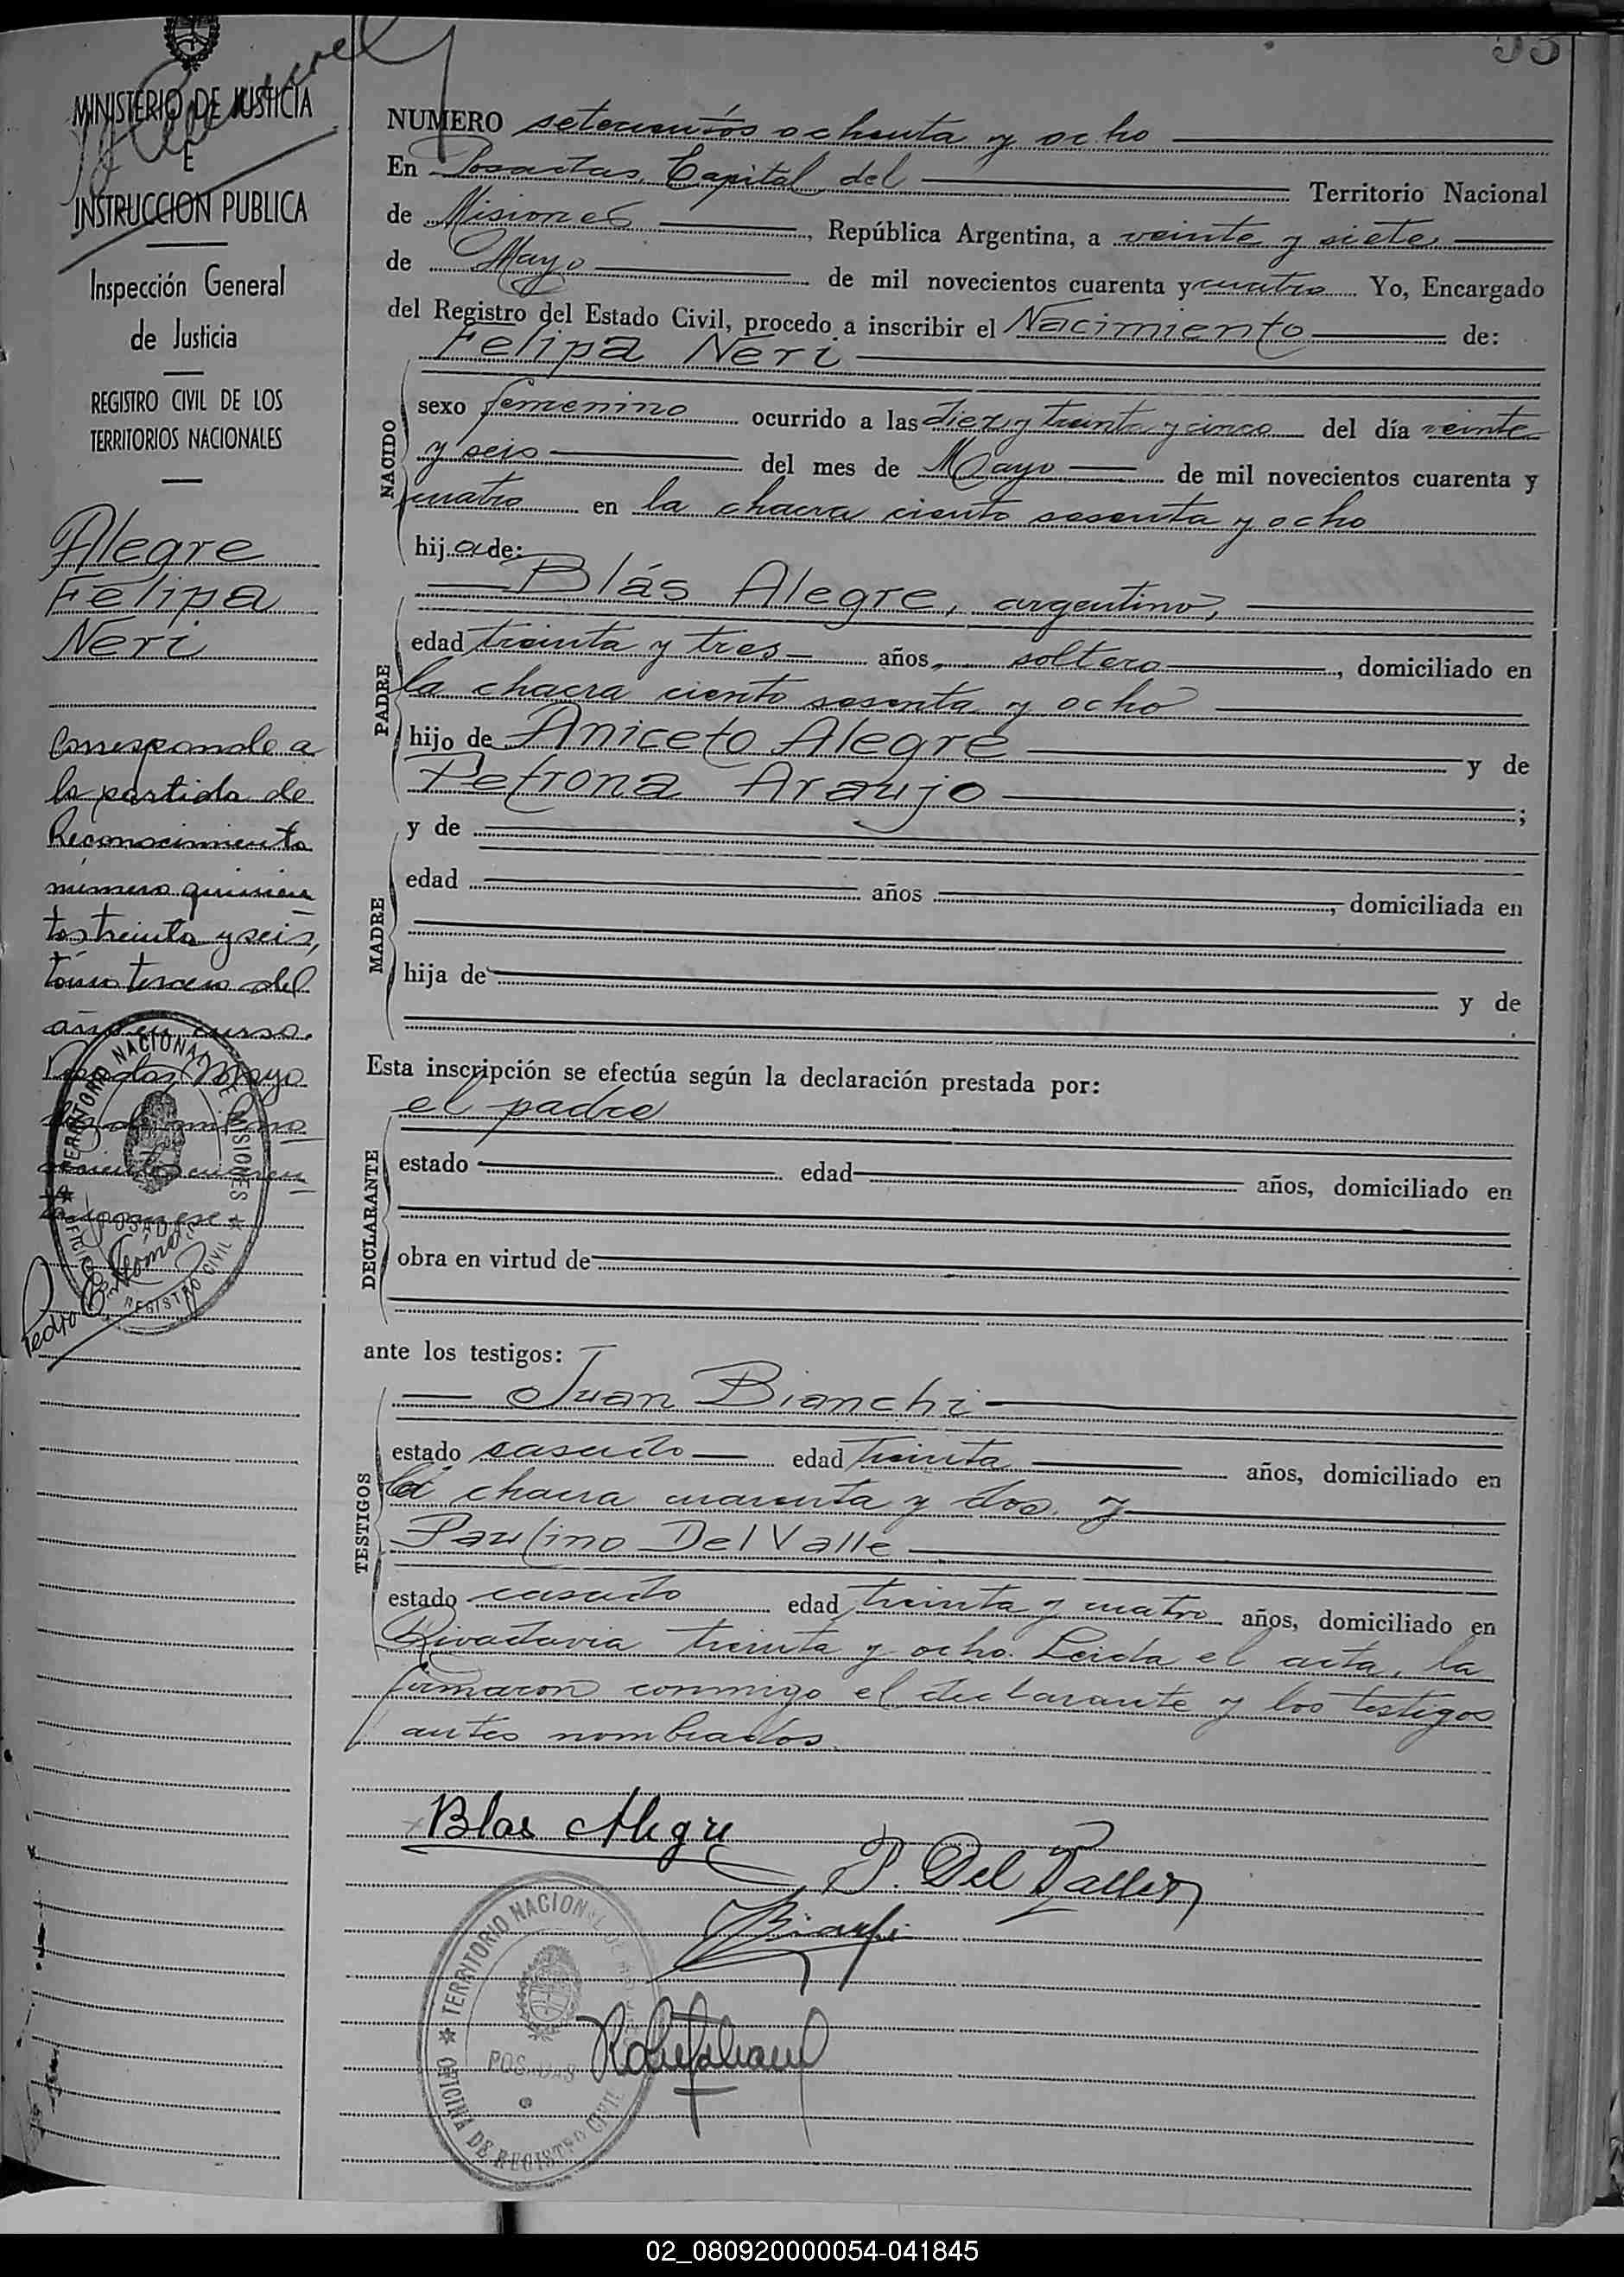 53
MINISTERIO DE JUSTICIA
E
INSTRUCCION PUBLICA
Inspección General
de Justicia
REGISTRO CIVIL DE LOS
TERRITORIOS NACIONALES
Alegre
Felipa
Neri
Corresponde a
la partida de
Reconocimiento
número quinien
tos treinta y seis,
tomo tercero del
año en curso.
Posadas, Mayo
TERRITORIO NACIONAL DE MISIONES
POSADAS
OFICINA DE REGISTRO CIVIL
Pedro E. Gómez
NUMERO setecientos ochenta y ocho
En Posadas, Capital del Territorio Nacional
de Misiones, República Argentina, a veinte y siete
de Mayo de mil novecientos cuarenta y cuatro Yo, Encargado
del Registro del Estado Civil, procedo a inscribir el Nacimiento de:
Felipa Neri
NACIDO
sexo femenino ocurrido a las diez y treinta y cinco del día veinte
y seis del mes de Mayo de mil novecientos cuarenta y
cuatro en la chacra ciento sesenta y ocho
hija de:
Blás Alegre, argentino,
PADRE
edad treinta y tres años, soltero, domiciliado en
la chacra ciento sesenta y ocho
hijo de Aniceto Alegre y de
Petrona Araujo;
MADRE
y de
edad años, domiciliada en
hija de y de
Esta inscripción se efectúa según la declaración prestada por:
el padre
DECLARANTE
estado edad años, domiciliado en
obra en virtud de
ante los testigos:
Juan Bianchi
TESTIGOS
estado casado edad treinta años, domiciliado en
la chacra cuarenta y dos. y
Paulino Del Valle
estado casado edad treinta y cuatro años, domiciliado en
Rivadavia treinta y ocho. Leida el acta, la
firmaron conmigo el declarante y los testigos
antes nombrados.
Blas Alegre
P. Del Valle
JBianchi
TERRITORIO NACIONAL DE MISIONES
POSADAS
OFICINA DE REGISTRO CIVIL
02_080920000054-041845